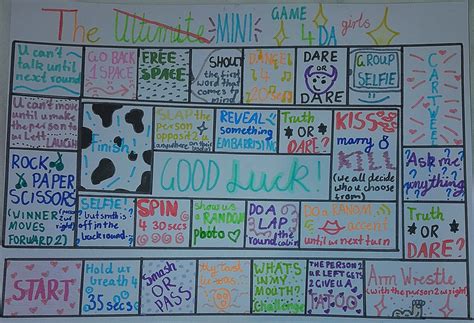 The Ultimate MINI GAME 4 DA girls
U can't
talk until
next round
GO BACK
1 SPACE
FREE
SPACE
SHOUT
the first
word that
comes 2
mind
DANCE
4
20 secs
DARE
OR
DARE
GROUP
SELFIE
CARTWEEL
U can't move
until u make
the person
LAUGH
Finish!
SLAP the
person
opposit 2
anywhere
REVEAL
something
EMBARRISING
Truth
OR
DARE?
KISS
marry
KILL
(we all decide
who u choose
from)
Ask me
anything
ROCK
PAPER
SCISSORS
(WINNER
MOVES
FORWARD 2)
GOOD Luck!
SELFIE!
but smth is
off in the
background
SPIN
4 30 secs
Show us
a RANDOM
photo
DO A
LAP
round
DO a RANDOM
accent
until ur next turn
Truth
OR
DARE?
START
Hold ur
breath 4
35 secs
Smash
OR
PASS
WHAT'S
IN MY
MOUTH?
Challenge
THE PERSON 2
UR LEFT GETS
2 GIVE U A
TATOO
Arm Wrestle
(with the person 2 ur right)